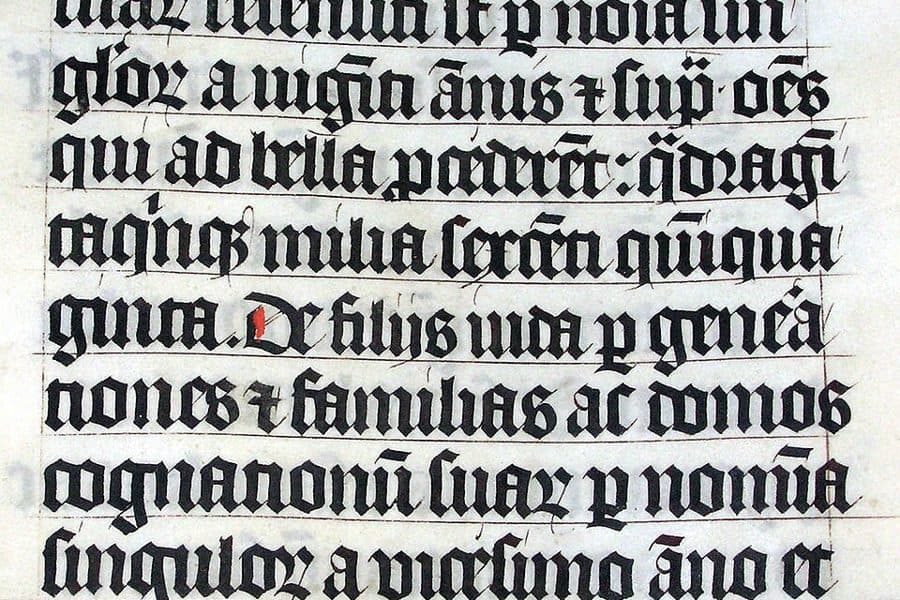 uaꝝ recensiti st̄ ꝑ noīa sin
gl'oꝝ a uigīti ānis ⁊ sup̄ · oēs
qui ad bella ꝓcederēt : qͣdragī
taqͥnqꝫ milia sexcēti qūiqua
ginta . De filijs iuda ꝑ gen̾a
tiones ⁊ familias ac domos
cognationū suaꝝ ꝑ nomīa
singuloꝝ a vicesimo āno et